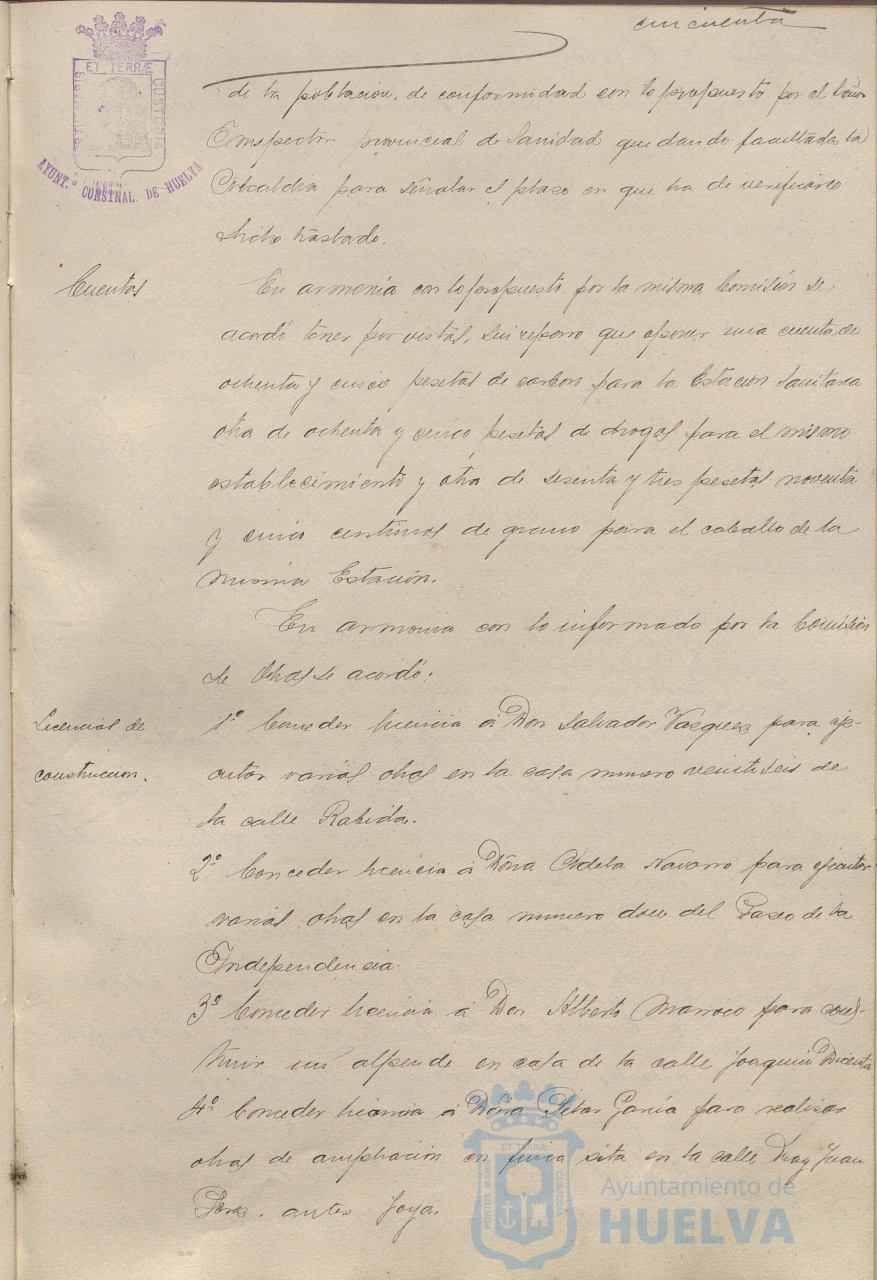 cincuenta
ET TERRÆ
CUSTODIA
AYUNT.º CONSTNAL. DE HUELVA
de la poblacion, de conformidad con lo propuesto por el Señor
Inspector provincial de Sanidad quedando facultada la
Alcaldia para señalar el plazo en que ha de verificarse
dicho traslado.
Cuentas
En armonia con lo propuesto por la misma Comisión se
acordó tener por vistas, sin reparo que oponer una cuenta de
ochenta y cinco pesetas de carbon para la Estacion Sanitaria
otra de ochenta y cinco pesetas de drogas para el mismo
establecimiento y otra de sesenta y tres pesetas noventa
y cinco centimos de grano para el caballo de la
misma Estación.
En armonia con lo informado por la Comisión
de Obras se acordó:
Licencias de
construccion.
1º Conceder licencia á Don Salvador Vazquez para eje-
cutar varias obras en la casa numero veintiseis de
la calle Rabida.
2º Conceder licencia á Doña Adela Navarro para ejecutar
varias obras en la casa numero doce del Paseo de la
Independencia.
3º Conceder licencia á Don Alberto Marroco para cons-
truir un alpende en casa de la calle Joaquin Dicenta
4º Conceder licencia á Doña Pilar Garcia para realizar
obras de ampliacion en finca sita en la calle Fray Juan
Perez. antes Joya.
ET TERRÆ
PORTUS MARIS
CUSTODIA
Ayuntamiento de
HUELVA